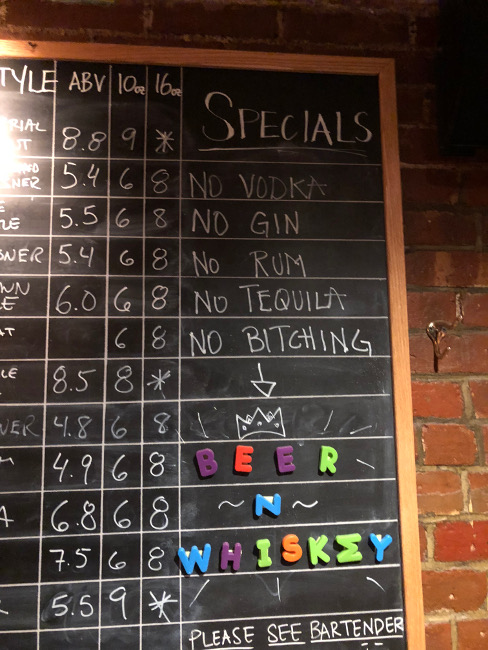 TYLE ABV 10oz 16oz SPECIALS
RIAL
8.8 9 *
NER 5.4 6 8 NO VODKA
LE 5.5 6 8 NO GIN
SNER 5.4 6 8 NO RUM
WN
LE 6.0 6 8 NO TEQUILA
AT 6 8 NO BITCHING
LE 8.5 8 *
NER 4.8 6 8
4.9 6 8 BEER
A 6.8 6 8 ~ N ~
7.5 6 8 WHISKEY
5.5 9 *
PLEASE SEE BARTENDER